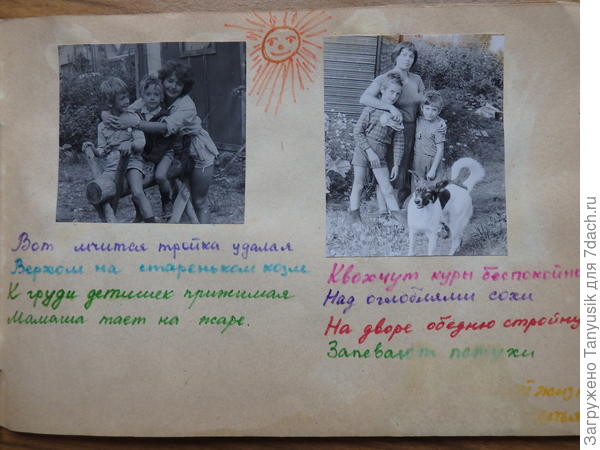 Вот мчится тройка удалая
Верхом на стареньком козле
К груди детишек прижимая
Мамаша тает на жаре.
Квохчут куры беспокойно
Над оглоблями сохи
На дворе обедню стройну
Запевают петухи
Загружено Tanyusik для 7dach.ru